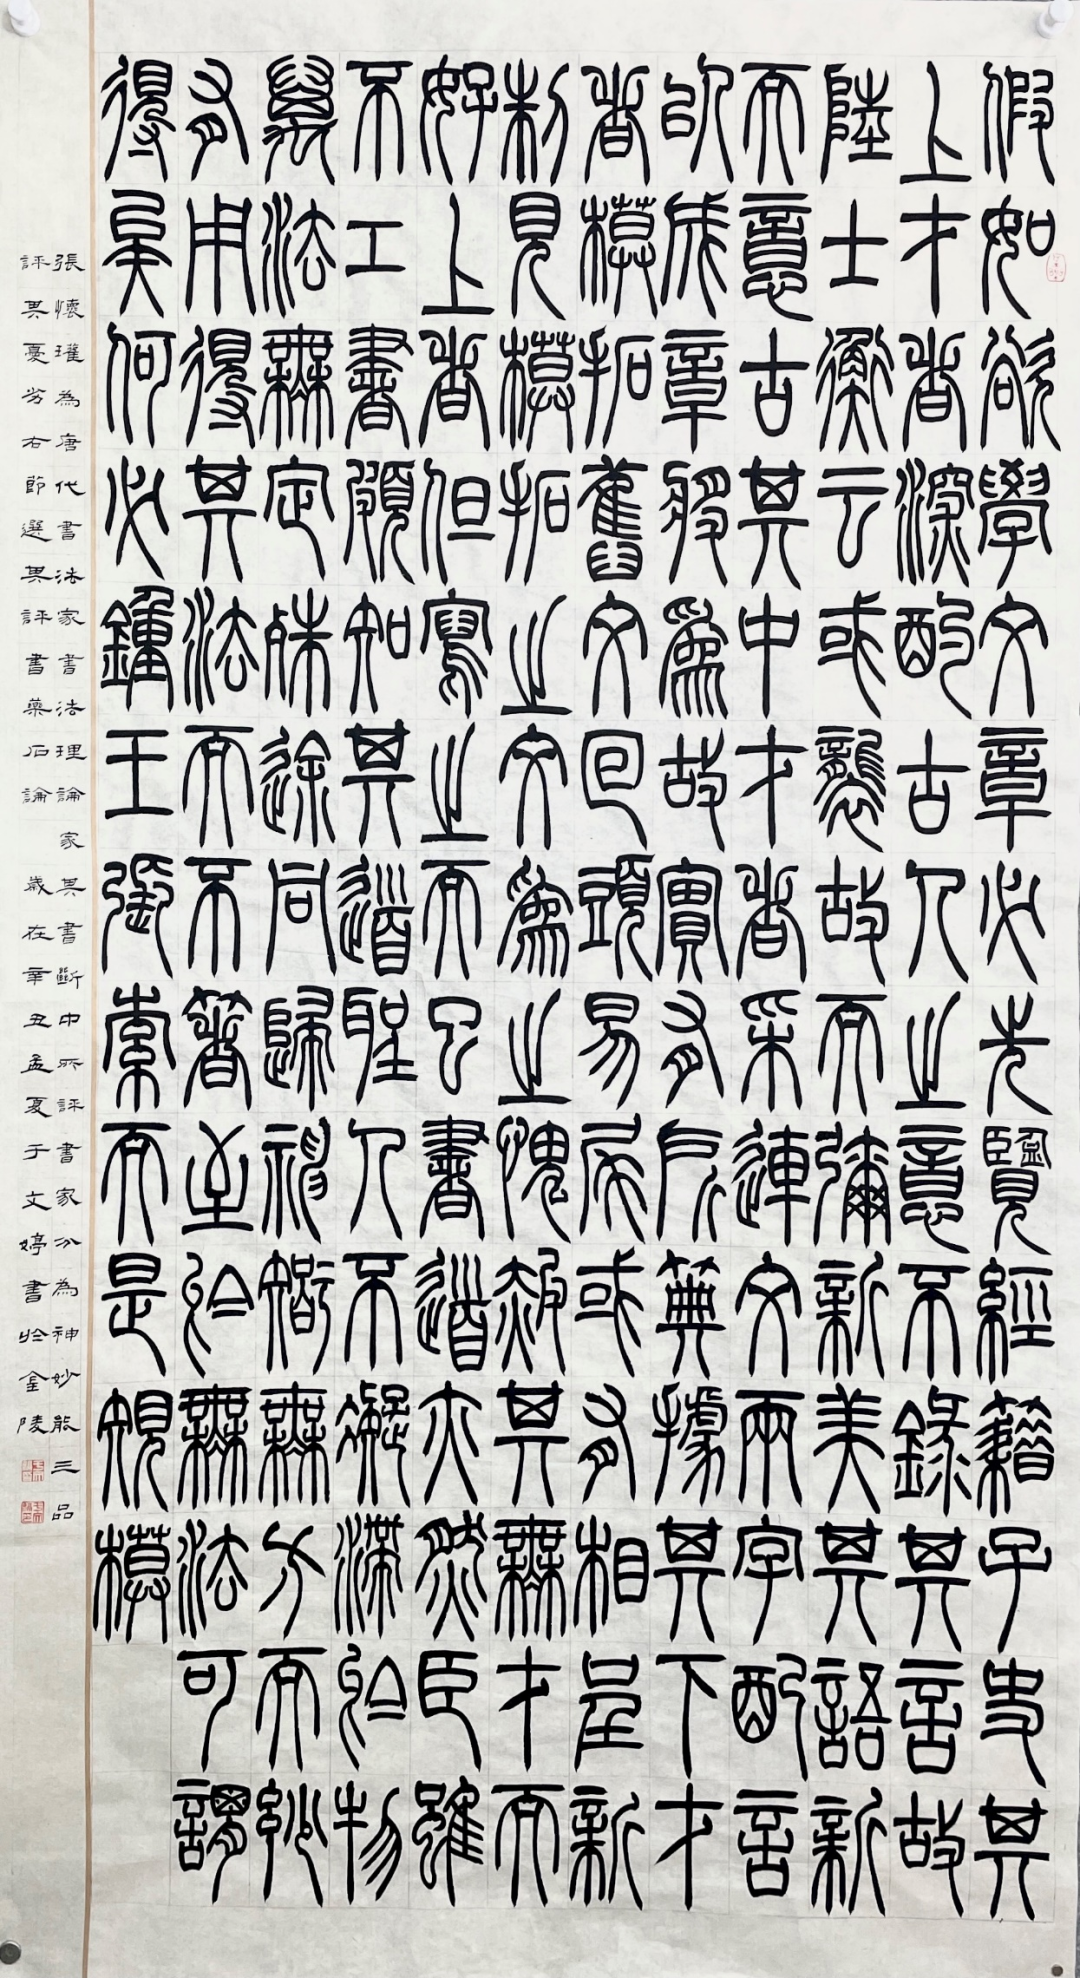 假如欲學文章必先覽經籍子史其
上才者深酌古人之意不錄其言故
陸士衡云或襲故而彌新美其語新
而意古其中才者采連文兩字配言
以成章將為故實有所典據其下才
者模拓舊文回頭易尾或有相呈新
制見模拓之文為之愧赧其無才而
好上者但寫之而已書道亦然臣雖
不工書頗知其道聖人不凝滯於物
萬法無定殊途同歸神智無方而妙
有用得其法而不著至於無法可謂
得矣何必鍾王張索而是規模
張懷瓘為唐代書法家書法理論家其書斷中所評書家分為神妙能三品
評其憂劣右節選其評書藥石論歲在辛丑孟夏于文婷書於金陵